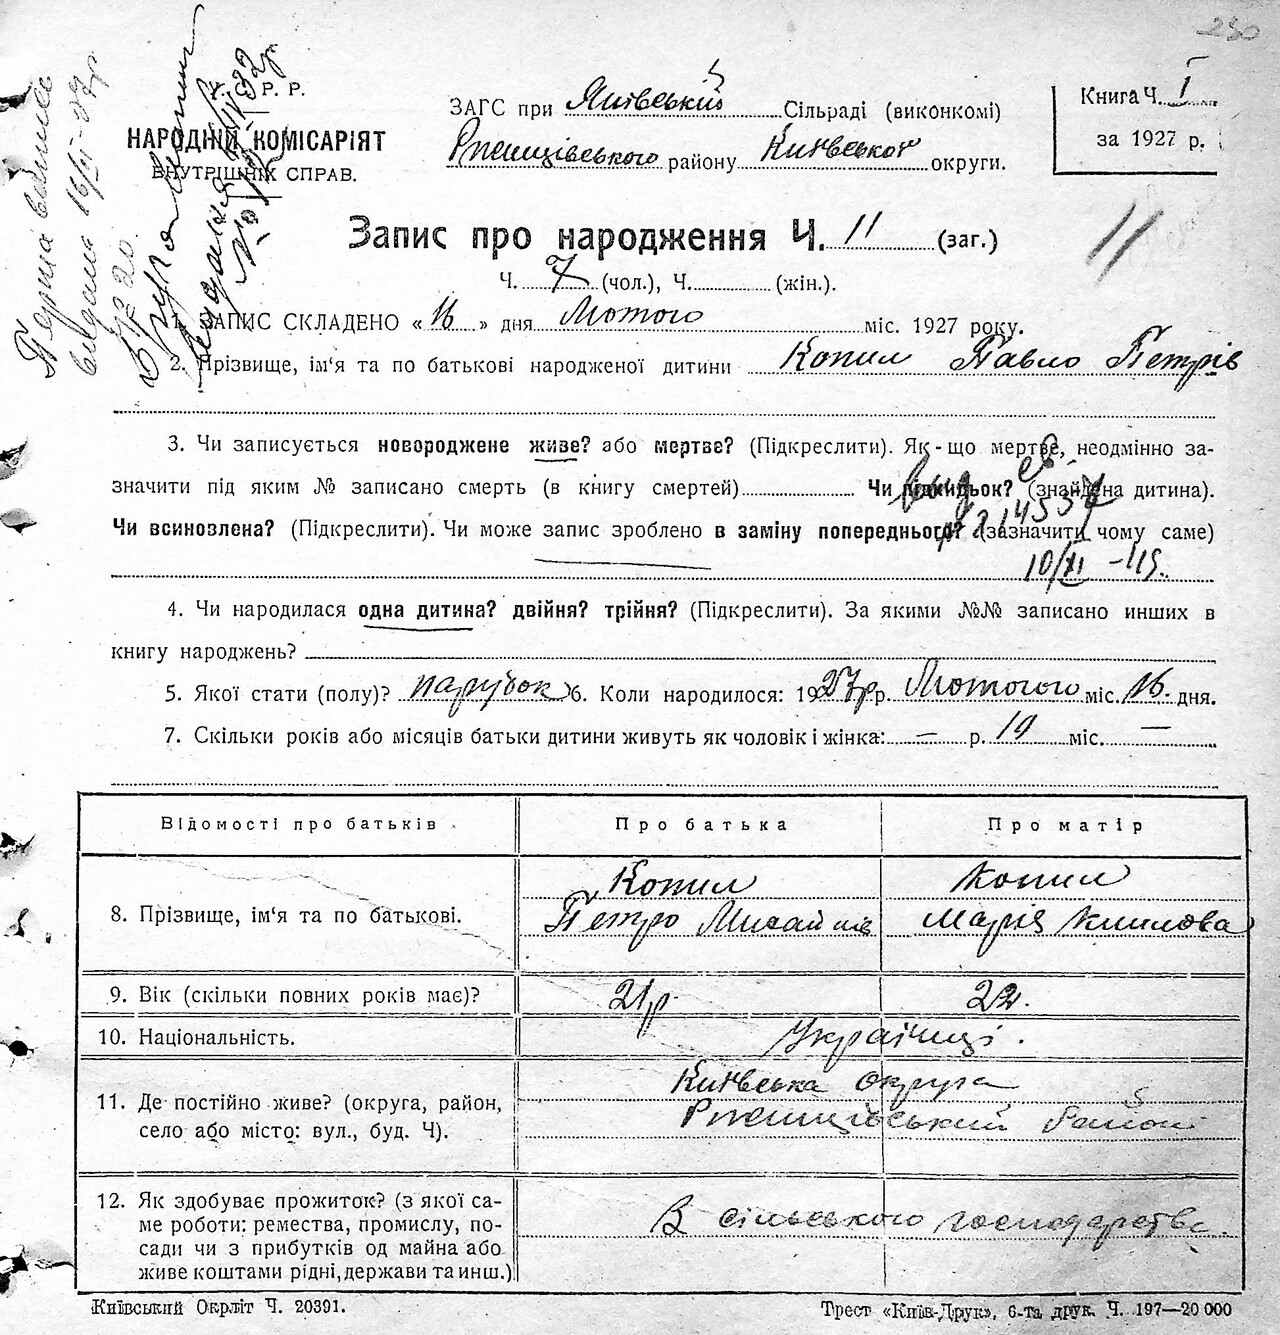 230
У. С. Р. Р.
НАРОДНІЙ КОМІСАРІЯТ
ВНУТРІШНІХ СПРАВ.
ЗАГС при Яшівський Сільраді (виконкомі)
Ржищівського району Київської округи.
Книга Ч. I
за 1927 р.
Перша
видана 16/
Запис про народження Ч. 11 (заг.)
11
Ч. 7 (чол.), Ч. (жін.).
1. ЗАПИС СКЛАДЕНО « 16 » дня Лютого міс. 1927 року.
2. Прізвище, ім'я та по батькові народженої дитини Копил Павло Петрів
3. Чи записується новороджене живе? або мертве? (Підкреслити). Як-що мертве, неодмінно за-
значити під яким № записано смерть (в книгу смертей) Чи підкидьок? (знайдена дитина).
Чи всиновлена? (Підкреслити). Чи може запис зроблено в заміну попереднього? (зазначити чому саме)
10/XI
4. Чи народилася одна дитина? двійня? трійня? (Підкреслити). За якими №№ записано инших в
книгу народжень?
5. Якої стати (полу)? парубок 6. Коли народилося: 1927р р. Лютого міс. 16 дня.
7. Скільки років або місяців батьки дитини живуть як чоловік і жінка: — р. 19 міс. —
Відомості про батьків Про батька Про матір
8. Прізвище, ім'я та по батькові. Копил Копил
Петро Михайлів Марія
9. Вік (скільки повних років має)? 21р. 22.
10. Національність. Українці.
11. Де постійно живе? (округа, район, Київська округа
село або місто: вул., буд. Ч). Ржищівський район
12. Як здобуває прожиток? (з якої са-
ме роботи: ремества, промислу, по- В сільського господарства
сади чи з прибутків од майна або
живе коштами рідні, держави та инш.)
Київський Окрліт Ч. 20391. Трест «Київ-Друк», 6-та друк. Ч. 197—20 000